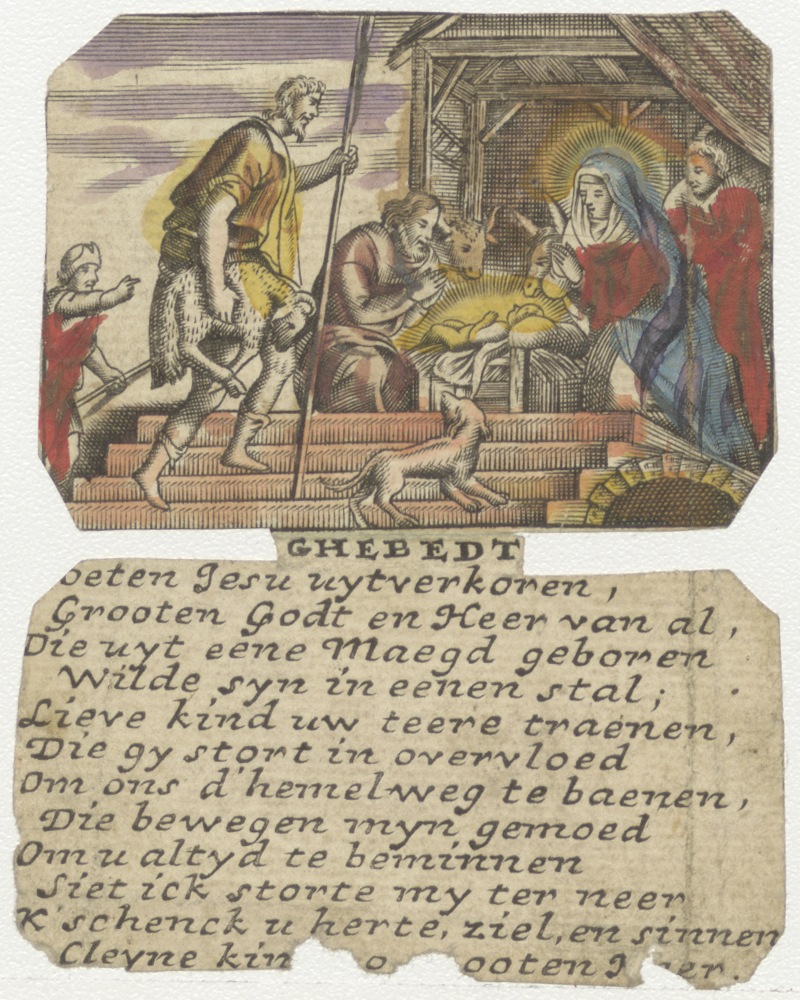 GHEBEDT
oeten Jesu uytverkoren,
Grooten Godt en Heer van al,
Die uyt eene Maegd geboren
Wilde syn in eenen stal;
Lieve kind uw teere traenen,
Die gy stort in overvloed
Om ons d'hemelweg te baenen,
Die bewegen myn gemoed
Om u altyd te beminnen
Siet ick storte my ter neer
K'schenck u herte, ziel, en sinnen
Cleyne kin o ooten er.